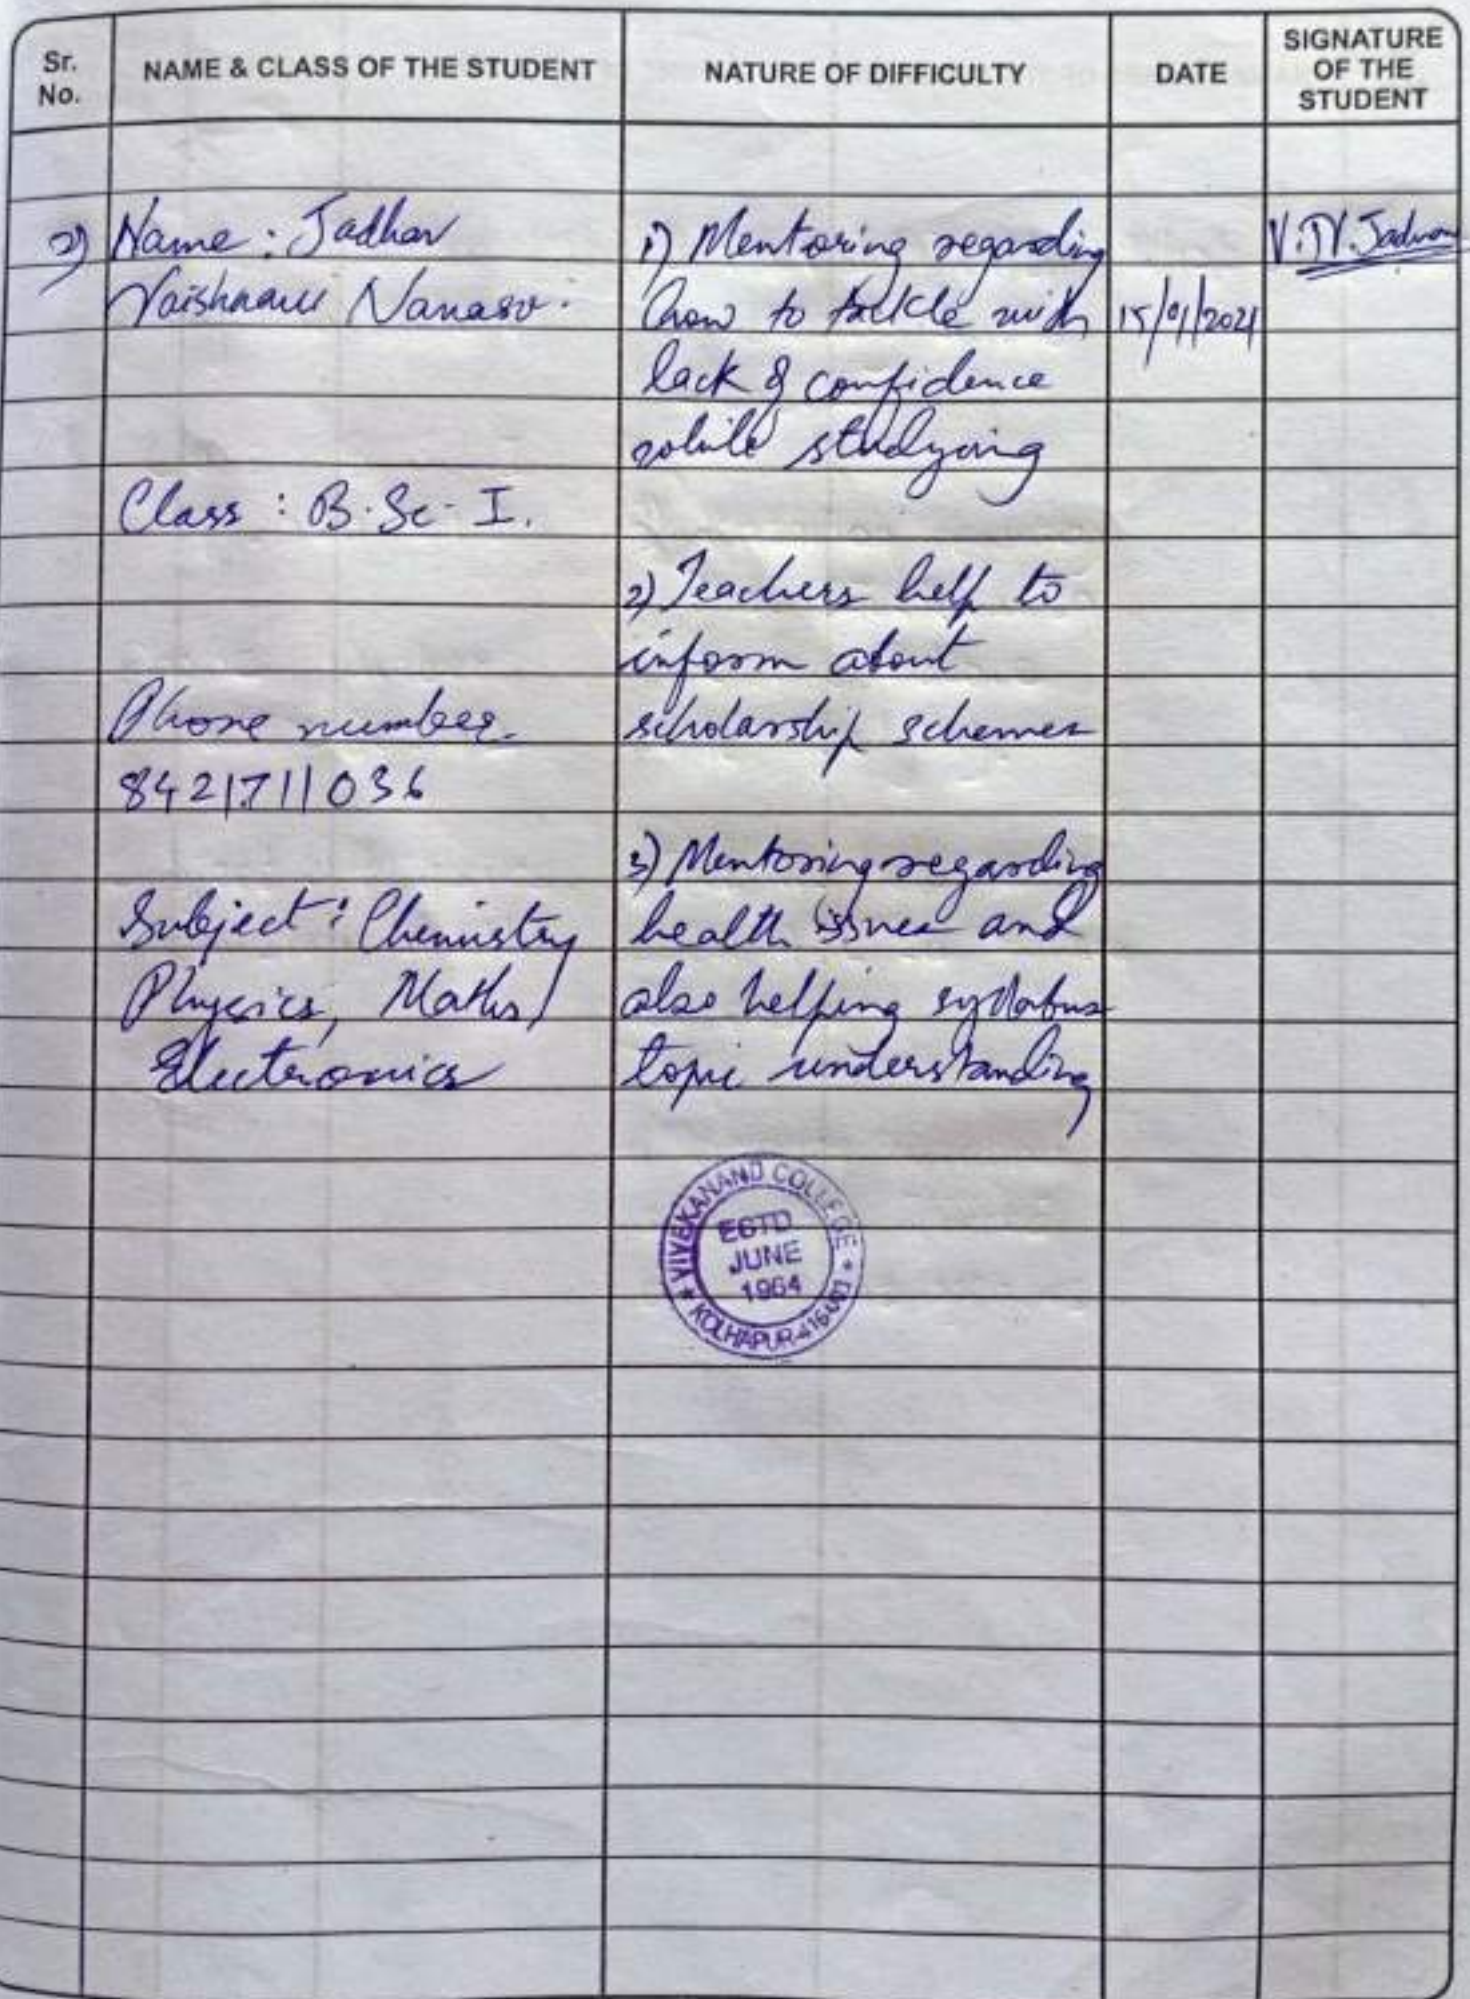 Sr. No.
NAME & CLASS OF THE STUDENT
NATURE OF DIFFICULTY
DATE
SIGNATURE OF THE STUDENT
2) Name : Jadhav
Nanaso.
Class : B.Sc-I.
Phone number.
8421711036
Subject : Chemistry
Physics, Maths,
Electronics
1) Mentoring regarding
how to takle with
lack of confidence
while studying
2) Teachers help to
inform about
scholarship schemes
3) Mentoring regarding
health issues and
also helping syllabus
topic understanding
15/01/2021
V.N. Jadhav
VIVEKANAND COLLEGE
ESTD
JUNE
1964
KOLHAPUR-416003